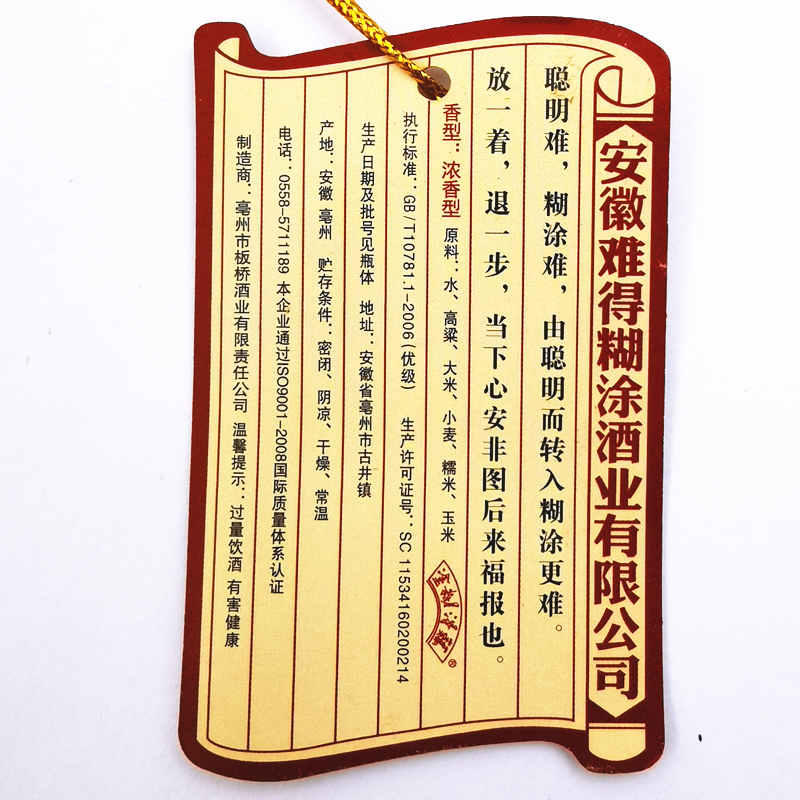 安徽难得糊涂酒业有限公司
聪明难，糊涂难，由聪明而转入糊涂更难。
放一着，退一步，当下心安非图后来福报也。
香型：浓香型 原料：水、高粱、大米、小麦、糯米、玉米
难得糊涂®
执行标准：GB/T10781.1-2006(优级) 生产许可证号：SC 11534160200214
生产日期及批号见瓶体 地址：安徽省亳州市古井镇
产地：安徽 亳州 贮存条件：密闭、阴凉、干燥、常温
电话：0558-5711189 本企业通过ISO9001-2008国际质量体系认证
制造商：亳州市板桥酒业有限责任公司 温馨提示：过量饮酒 有害健康